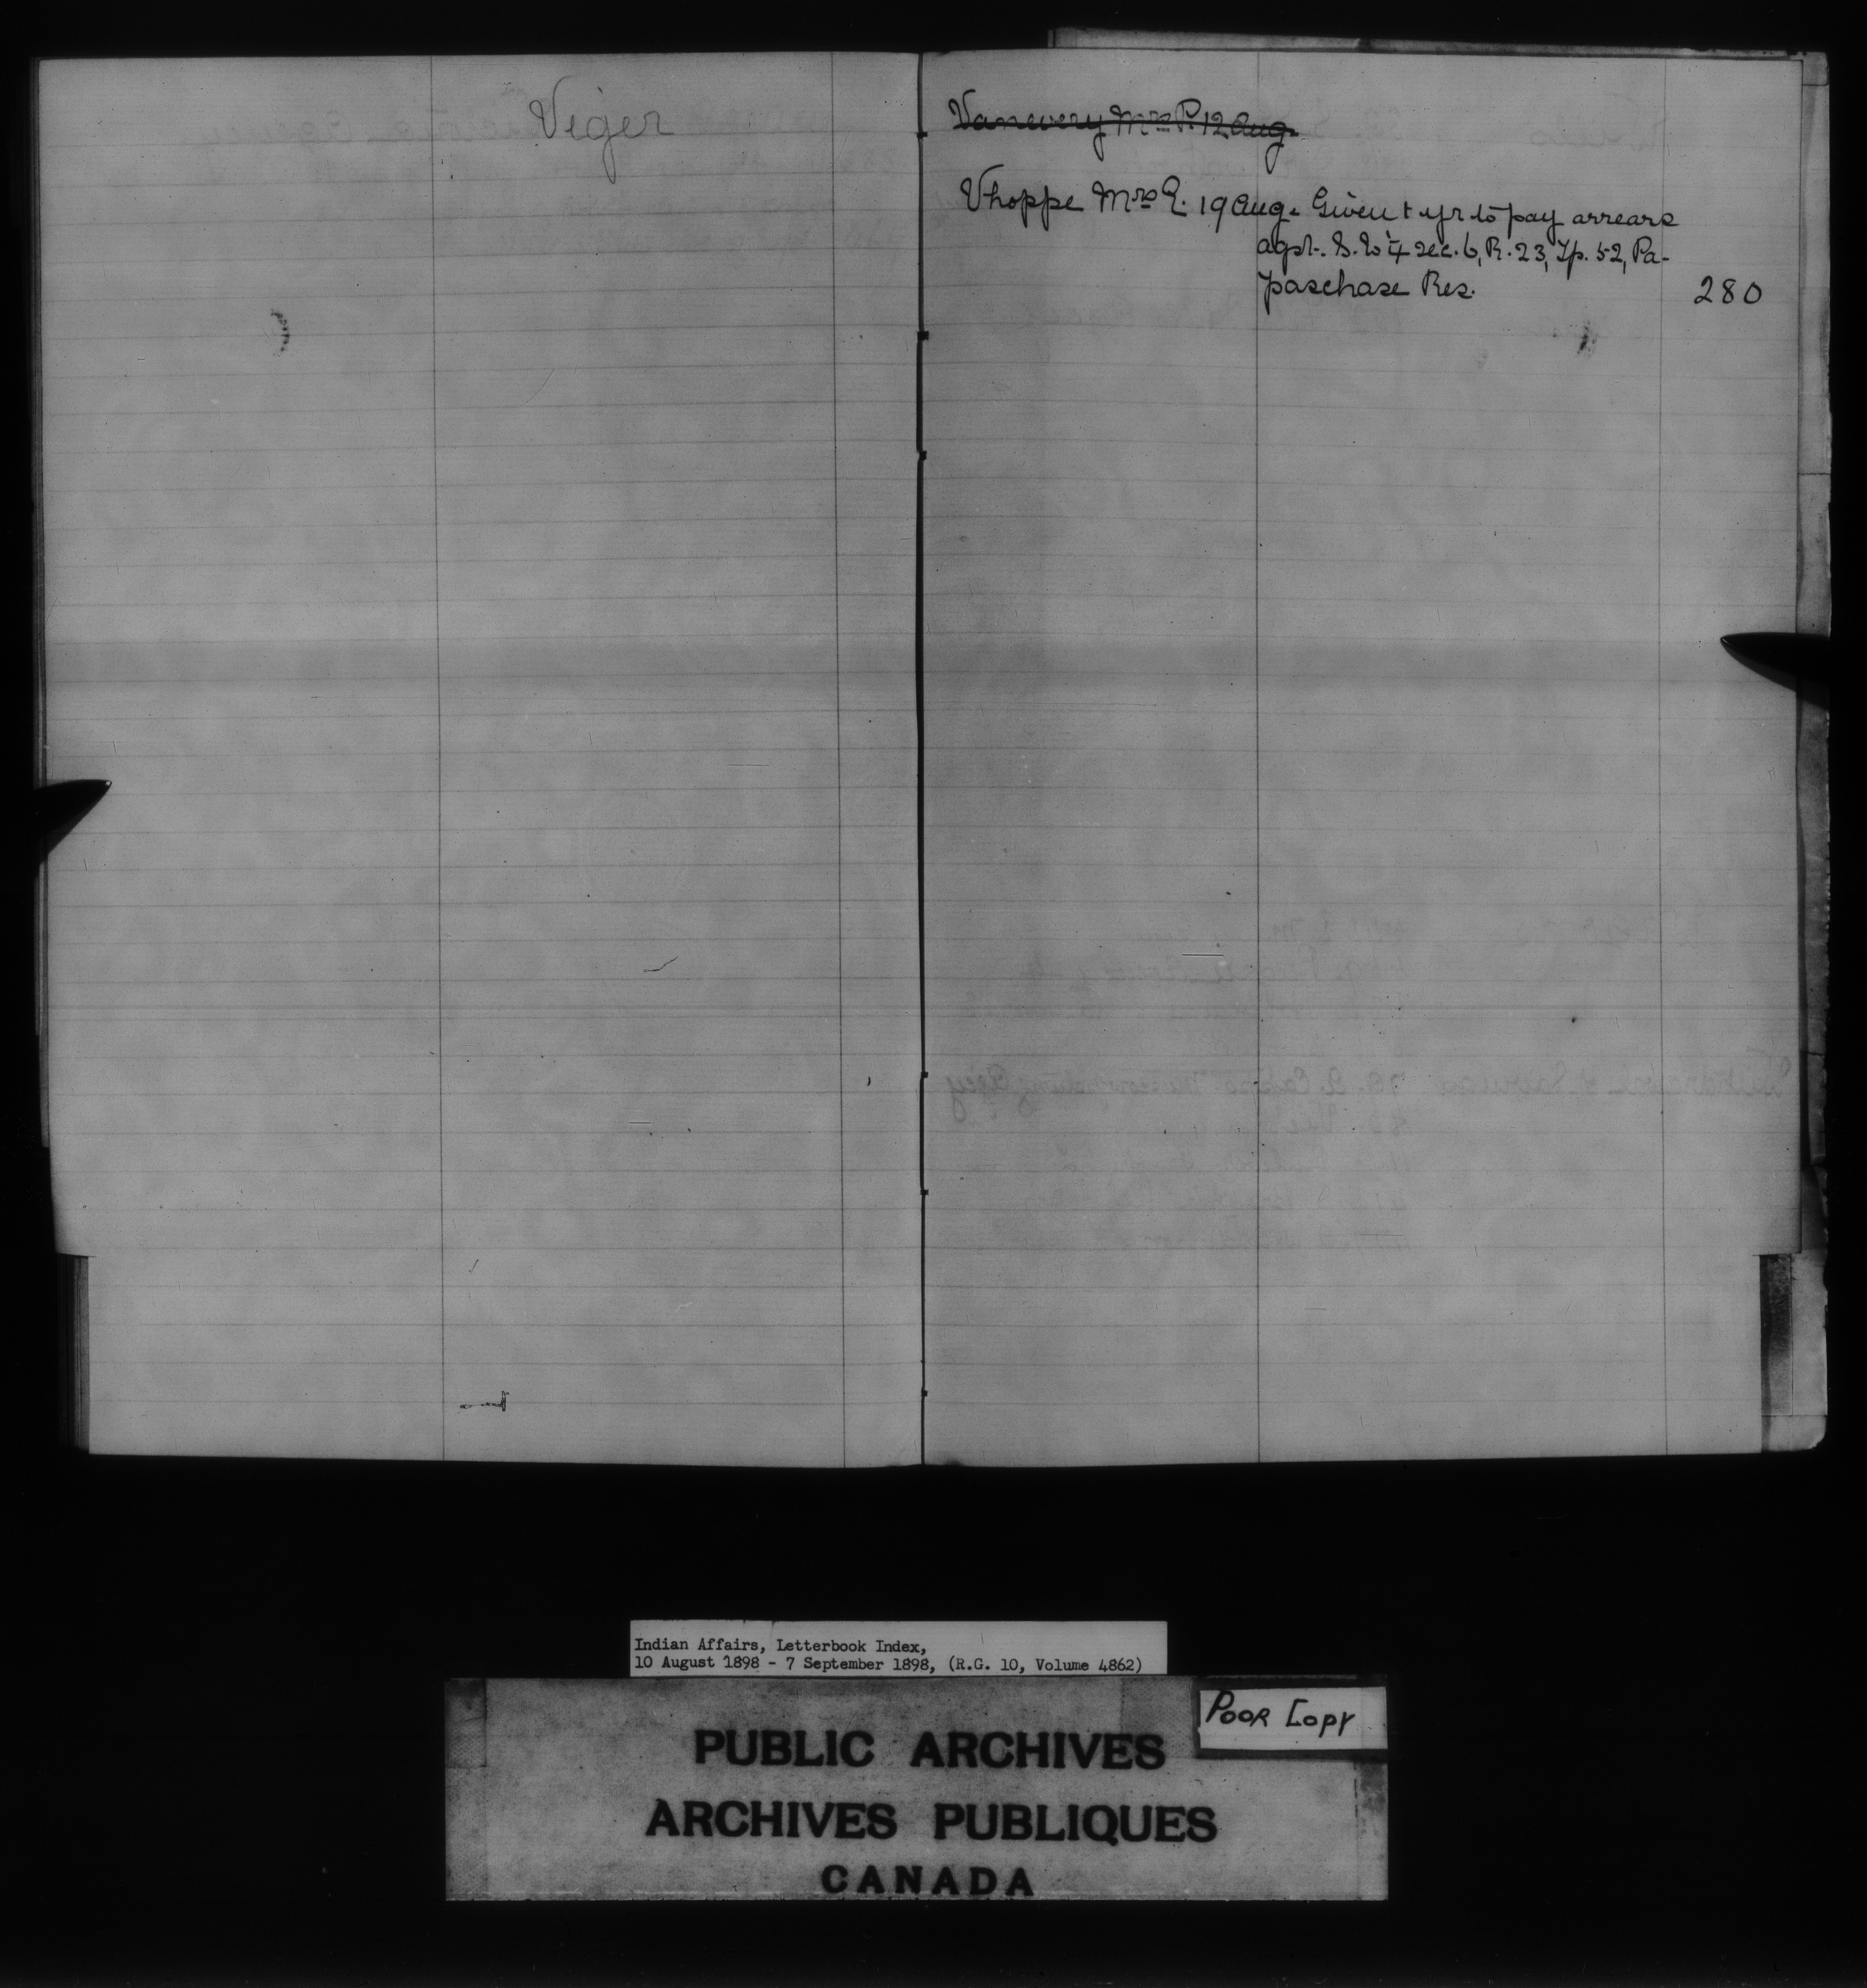 Viger
Vanevery Mrs P. 12 Aug.
Vhoppe Mrs E. 19 Aug. Given 1 yr to pay arrears
agst. S.W ¼ sec. 6, R. 23, Tp. 52, Pa-
paschase Res. 280
Indian Affairs, Letterbook Index,
10 August 1898 - 7 September 1898, (R.G. 10, Volume 4862)
POOR COPY
PUBLIC ARCHIVES
ARCHIVES PUBLIQUES
CANADA